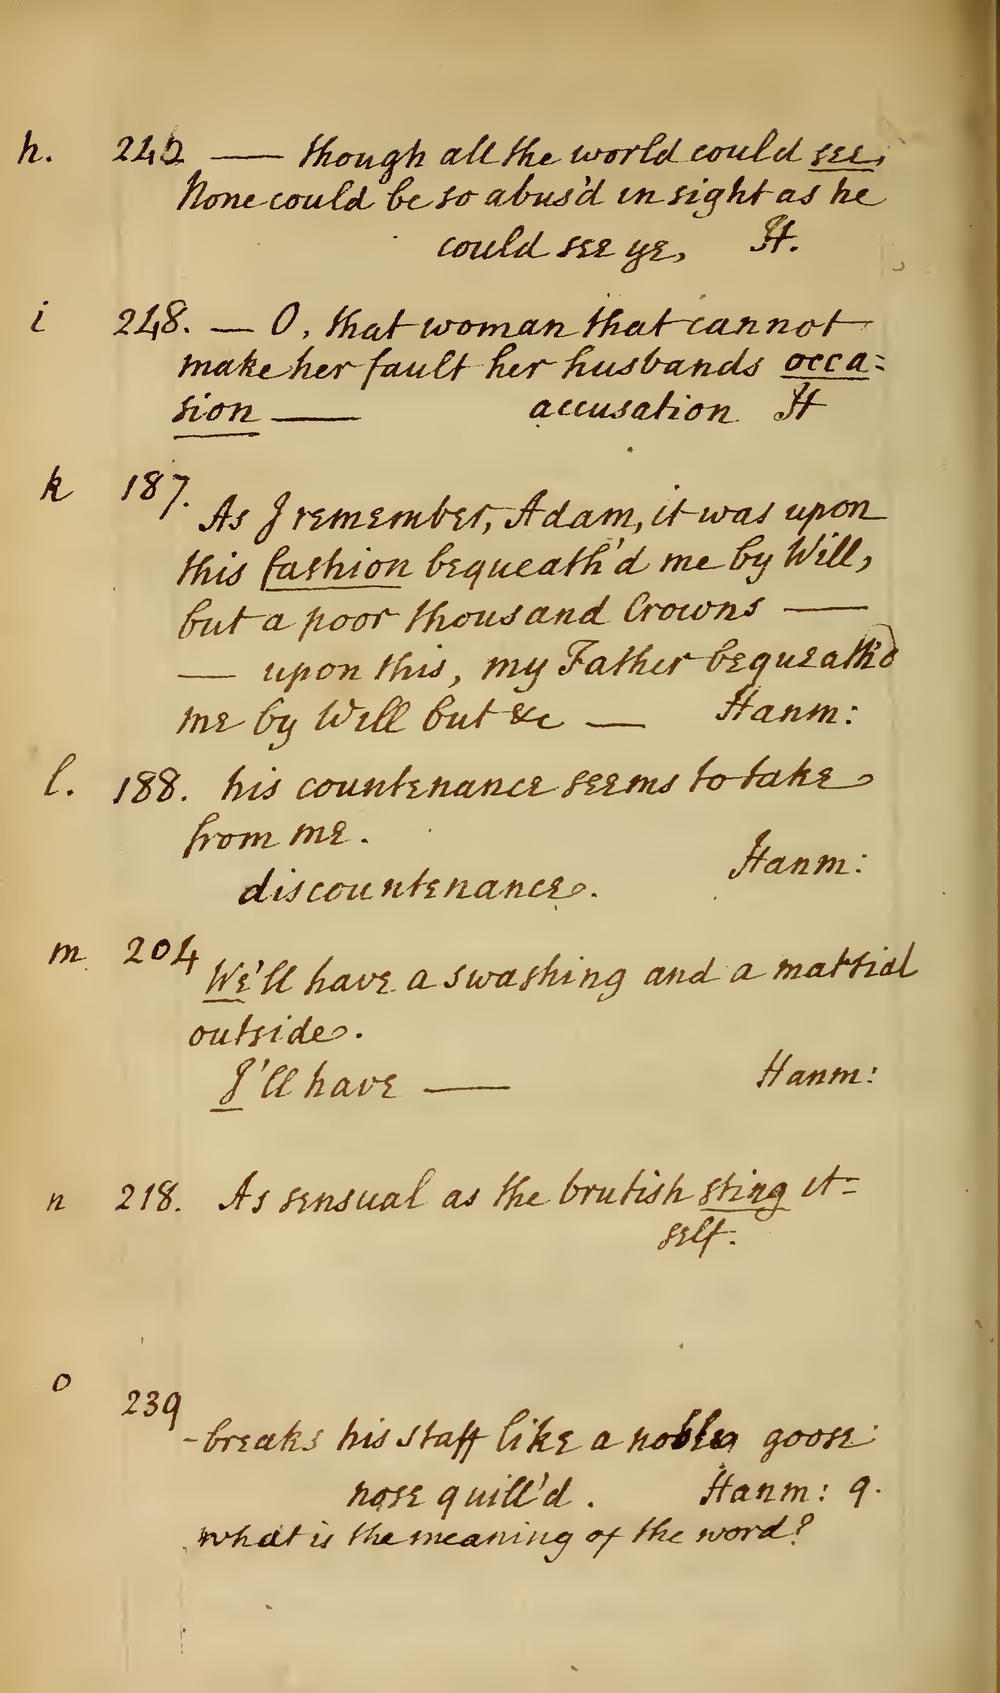 h. 242 — though all the world could see,
None could be so abus'd in sight as he
could see ye, H.
i 248. — O, that woman that cannot
make her fault her husbands occa=
sion — accusation H
k 187.
As J remember, Adam, it was upon
this fashion bequeath'd me by Will,
but a poor thousand Crowns —
— upon this, my Father bequeath'd
me by Will but &c — Hanm:
l. 188. his countenance seems to take
from me.
Hanm:
discountenance.
m 204
We'll have a swashing and a martial
outside.
J'll have — Hanm:
n 218. As sensual as the brutish sting it=
self.
o
239
-breaks his staff like a noble goose
nose quill'd. Hanm: q.
what is the meaning of the word?